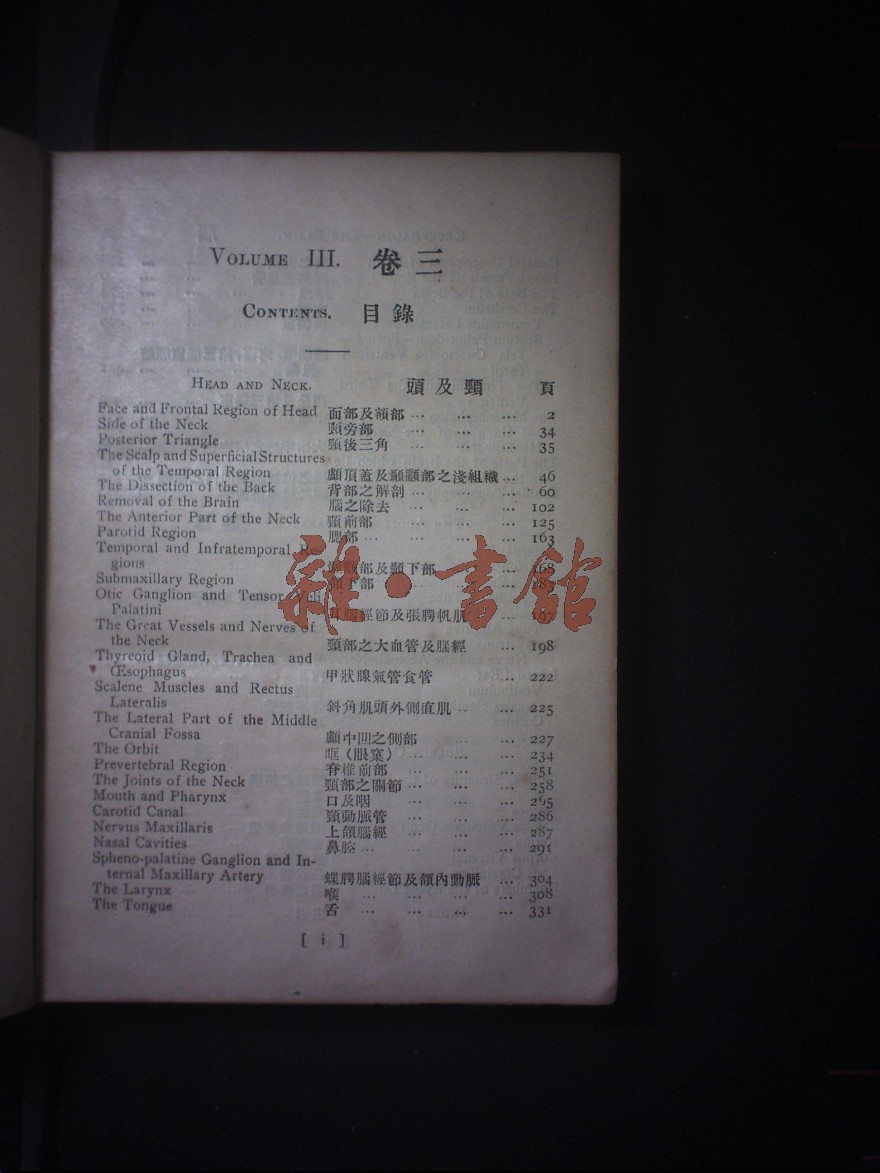 VOLUME III. 卷三
CONTENTS. 目錄
HEAD AND NECK. 頭及頸 頁
Face and Frontal Region of Head 面部及額部 ... ... ... 2
Side of the Neck 頸旁部 ... ... ... 34
Posterior Triangle 頸後三角 ... ... ... 35
The Scalp and Superficial Structures
of the Temporal Region 顱頂蓋及顳顬部之淺組織 ... 46
The Dissection of the Back 背部之解剖 ... ... ... 60
Removal of the Brain 腦之除去 ... ... ... 102
The Anterior Part of the Neck 頸前部 ... ... ... 125
Parotid Region 腮部 ... ... ... 163
Temporal and Infratemporal Re-
gions 部及顳下部 ... 168
Submaxillary Region 下部 ... ...
Otic Ganglion and Tensor Veli
Palatini 經節及張腭帆肌
The Great Vessels and Nerves of
the Neck 頸部之大血管及腦經 ... 198
Thyreoid Gland, Trachea and
Œsophagus 甲狀腺氣管食管 ... ... 222
Scalene Muscles and Rectus
Lateralis 斜角肌頭外側直肌 ... ... 225
The Lateral Part of the Middle
Cranial Fossa 顱中凹之側部 ... ... 227
The Orbit 眶（眼窠） ... ... ... 234
Prevertebral Region 脊椎前部 ... ... ... 251
The Joints of the Neck 頸部之關節 ... ... ... 258
Mouth and Pharynx 口及咽 ... ... ... 265
Carotid Canal 頸動脈管 ... ... ... 286
Nervus Maxillaris 上頜腦經 ... ... ... 287
Nasal Cavities 鼻腔 ... ... ... ... 291
Spheno-palatine Ganglion and In-
ternal Maxillary Artery 蝶腭腦經節及頜內動脈 ... 304
The Larynx 喉 ... ... ... ... 308
The Tongue 舌 ... ... ... ... 331
[ i ]
雜·書館